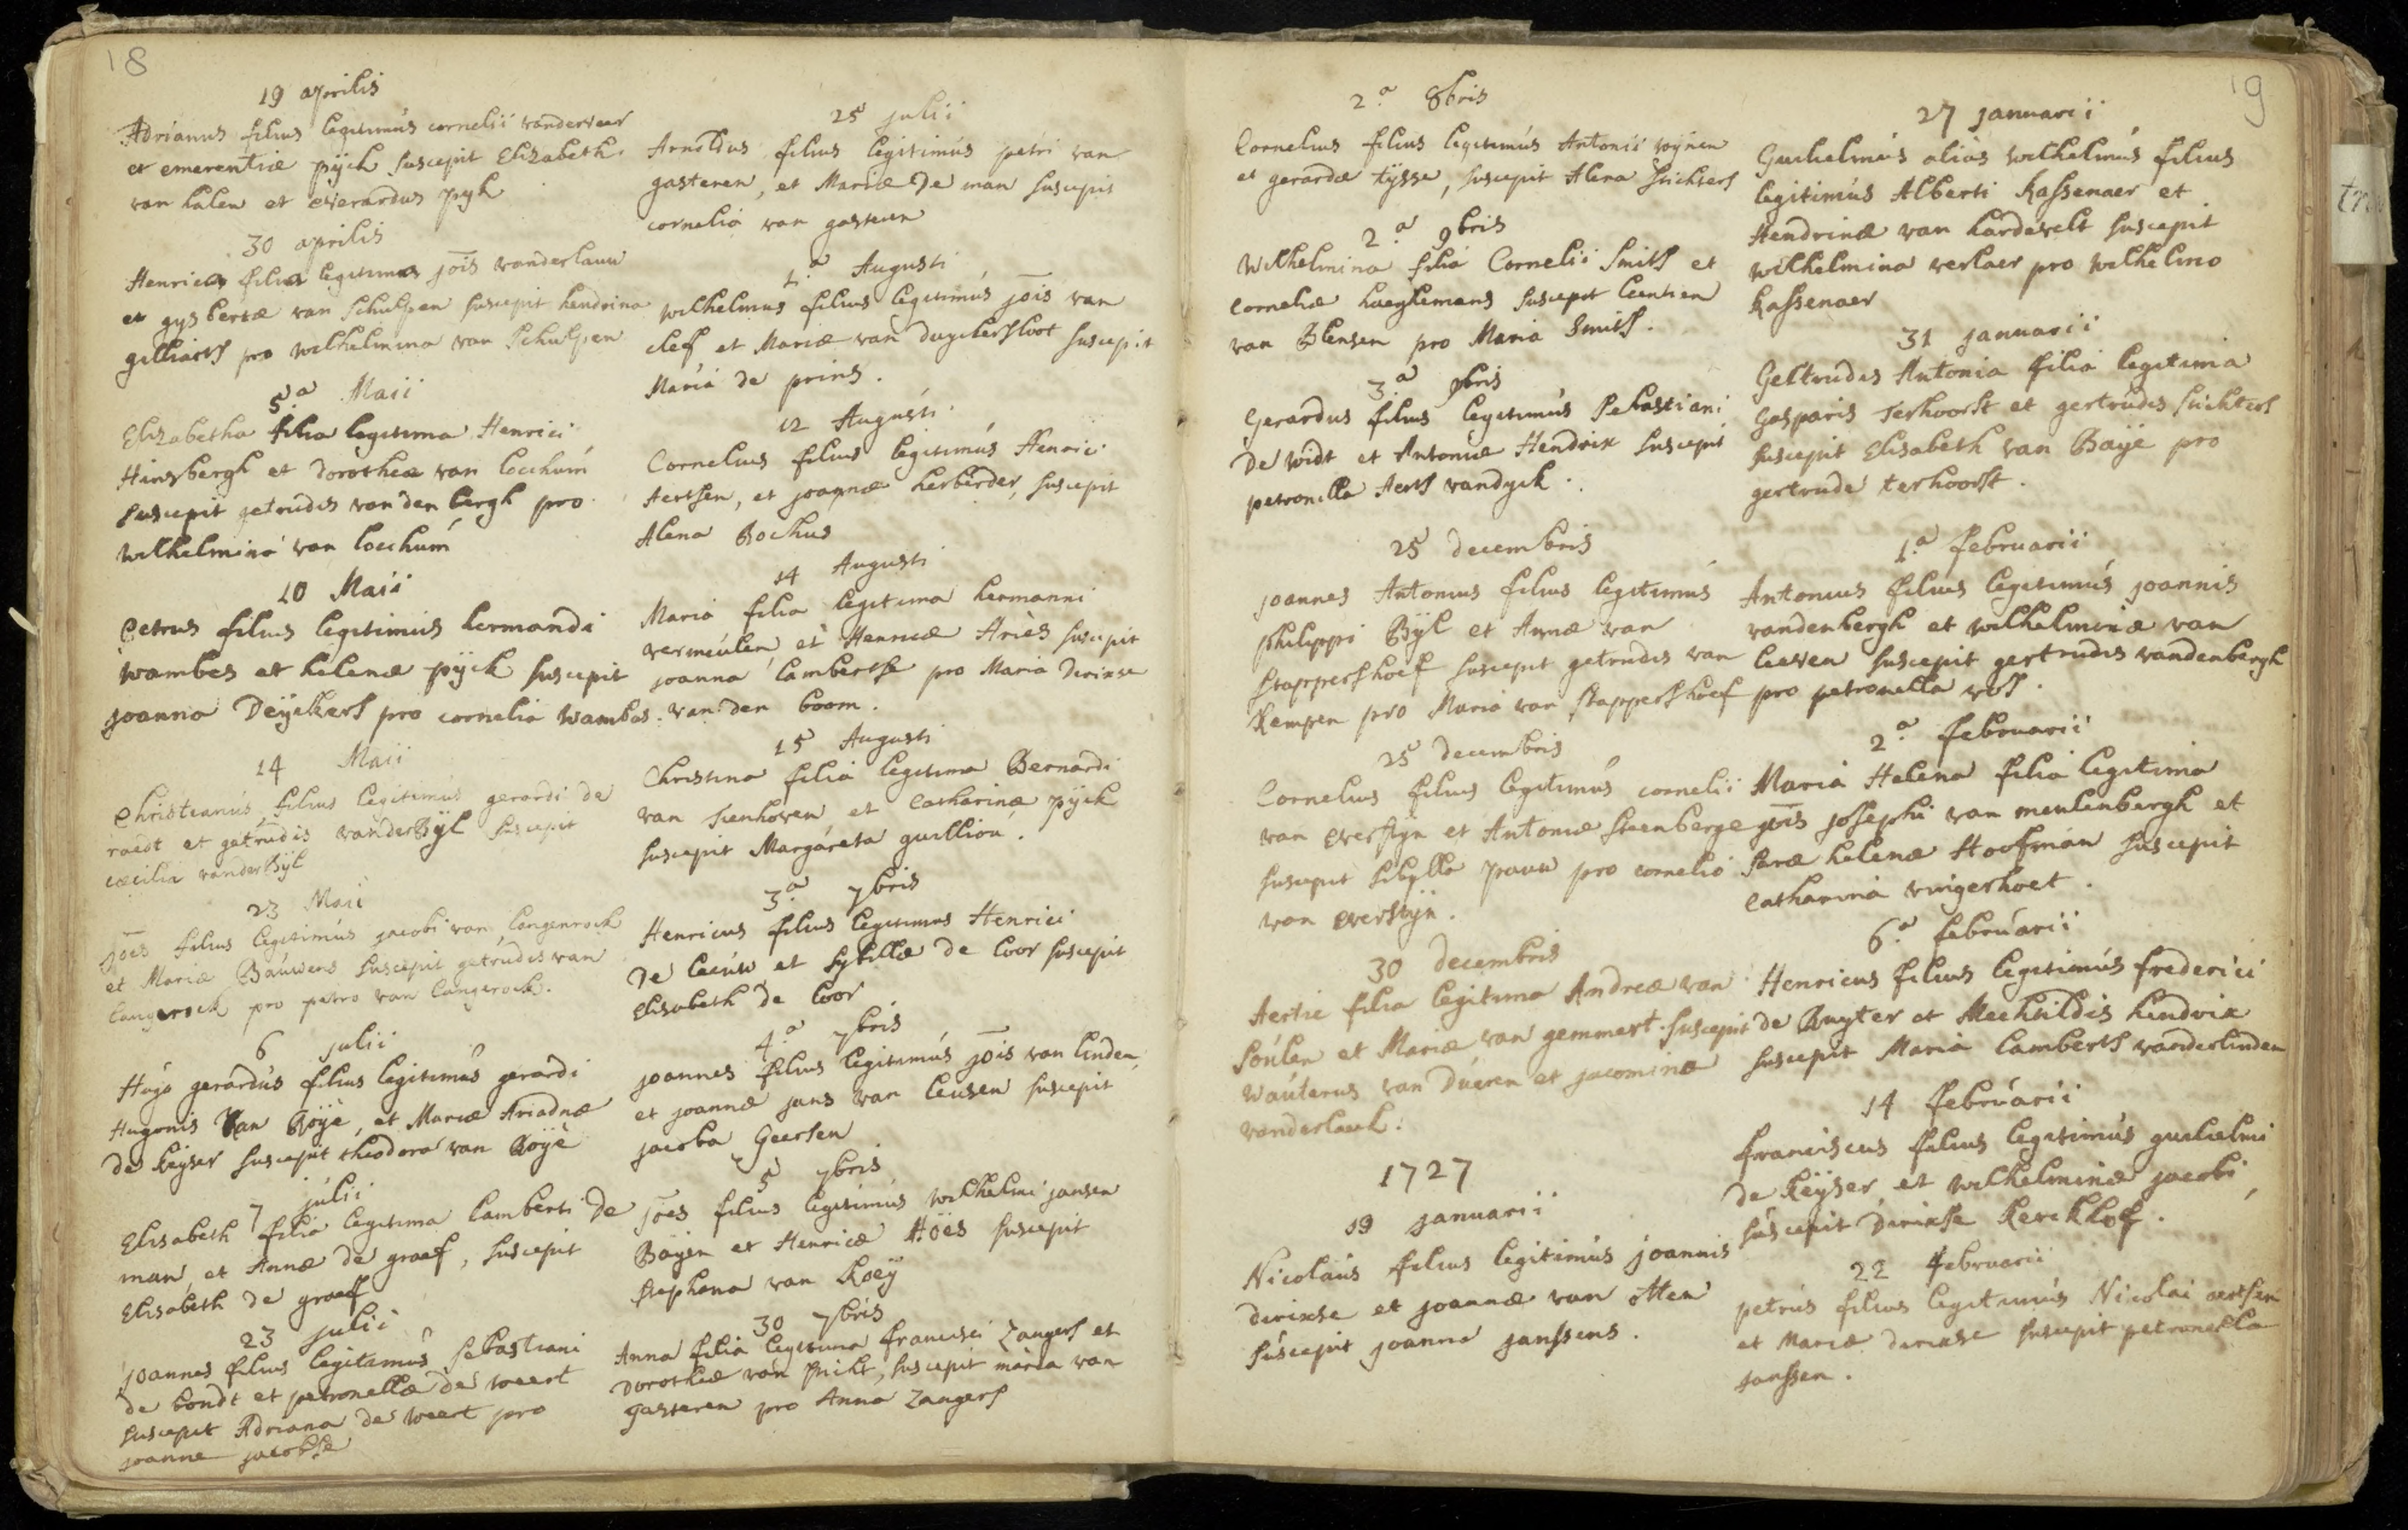 18
19 aprilis
Adrianus filius legitimús cornelii vanderveer
et emerentiæ pÿck suscepit Elizabeth
van halen et everardus pyk
30 aprilis
Henrica filia legitima jois vanderlauw
et gysbertæ van Schulpen suscepit hendrina
gilliaerts pro wilhelmina van Schulpen
5.a Maii
Elizabetha filia legitima Henrici
Hinsbergh et dorotheæ van locchum
suscepit getrudis van den bergh pro
wilhelmina van locchúm
10 Maii
Petrus filius legitimus hermandi
wambes et helenæ pÿck suscepit
joanna Deÿckers pro cornelia wambas.
14 Maii
Christianús filius legitimús gerardi de
raedt et getrudis vanderbÿl suscepit
cæcilia vanderbÿl
23 Maii
joes filius legitimús jacobi van langenrock
et Mariæ Baúwens suscepit getrudis van
langerock pro petro van langerock.
6 julii
Húgo gerardús filius legitimús gerardi
Hugonis Van Roÿe, et Mariæ Ariadnæ
de keyser suscepit theodora van Roÿe
7 júlii
Elisabeth filia legitima lamberti de
man, et Annæ de graef, suscepit
Elisabeth de graef
23 julii
joannes filius legitimús sebastiani
de bondt et petronellæ de weert
suscepit Adriana de weert pro
joanne jacobse
25 julii
Arnoldus filius legitimús petri van
gasteren, et Mariæ de man suscepit
cornelia van gasteren
1.a Augusti
wilhelmus filius legitimús jois van
cleef et Mariæ van duyckersloot suscepit
Maria de prins.
12 Augústi
Cornelius filius legitimús Henrici
Aertsen, et joannæ herberder, suscepit
Alena Bochus
14 Augusti
Maria filia legitima hermanni
vermeúlen et Henricæ Aries suscepit
joanna lambertse pro Maria dirixse
van den boom.
15 Augusti
Christina filia legitima Bernardi
van sienhoven et Catharinæ pÿck
suscepit Margareta guillion.
3.a 7bris
Henricus filius legitimus Henrici
de leeúw et sybillæ de loor suscepit
Elisabeth de loor
4.a 7bris
joannes filius legitimús jois van linden
et joannæ jans van leusen suscepit
jacoba Geersen
5 7bris
joes filius legitimús wilhelmi jansen
Baÿen et Henricæ Höes suscepit
stephana van Roeÿ
30 7bris
Anna filia legitima francisci Zangers et
Dorotheæ van Stricht, suscepit maria van
gasteren pro Anna Zangers
19
2.a 8bris
Cornelius filius legitimús Antonii wynen
et gerardæ tÿsse, suscepit Alena Stichters
2.a 9bris
Wilhelmina filia Cornelii Smits et
Corneliæ haeghemans suscepit leentien
van Blensen pro Maria Smits.
3.a 9bris
Gerardus filius legitimús Sebastiani
De widt et Antoniæ Hendrix suscepit
petronella Aerts vandyck.
25 decembris
joannes Antonius filius legitimús
philippi Bÿl et Annæ van
stappershoef suscepit getrudis van
kempen pro Maria van stappershoef
25 decembris
Cornelius filius legitimús cornelii
van everstyn et Antoniæ steenberge
suscepit sibylla pauw pro cornelio
van everstyn.
30 decembris
Aertie filia legitima Andreæ van
soúlen et Mariæ van gemmert. suscepit
waúterus van Dúeren et jacomina
vanderlauk.
1727
19 januarii
Nicolaús filius legitimús joannis
dirixse et joannæ van otten
súscepit joanna janssens.
27 januarii
Guilielmús aliàs wilhelmús filius
legitimús Alberti kassenaer et
Hendrinæ van hardevelt suscepit
wilhelmina verlaer pro wilhelmo
kassenaer
31 januarii
Geltrudis Antonia filia legitima
Gasparis Terhoorst et gertrudis stichters
suscepit Elisabeth van Baÿe pro
gertrude terhoorst.
1.a februarii
Antonius filius legitimús joannis
vandenbergh et wilhelminæ van
leeven suscepit gertrudis vandenbergh
pro petronella vos.
2.a februarii
Maria Helena filia legitima
jois josephi van meulenbergh et
saræ helenæ Hoofman suscepit
catharina vingerhoet.
6.a februarii
Henricus filius legitimús frederici
de Ruyter et Mechtildis hendrix
suscepit Maria lamberts vanderlinden
14 februarii
franciscus filius legitimús guilielmi
de keÿser et wilhelminæ jacobi,
súscepit dirixse kerckhof.
22 februarii
petrús filius legitimús Nicolai aertsen
et Mariæ dirixse suscepit petronella
janssen.